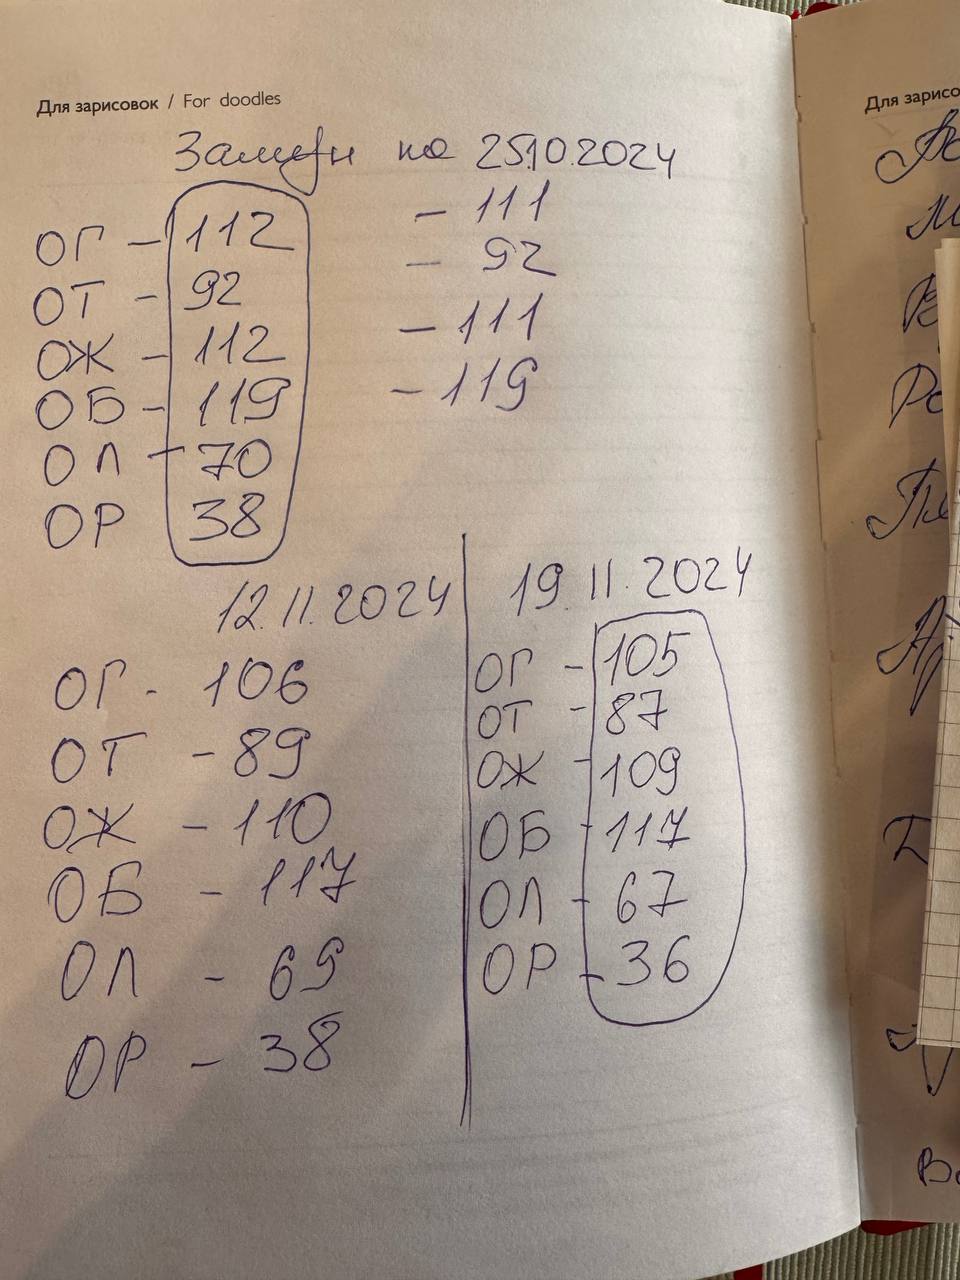 Для зарисовок / For doodles
Замеры на 25.10.2024
ОГ - 112 - 111
ОТ - 92 - 92
ОЖ - 112 - 111
ОБ - 119 - 119
ОЛ - 70
ОР 38
12.11.2024
ОГ - 106
ОТ - 89
ОЖ - 110
ОБ - 117
ОЛ - 69
ОР - 38
19.11.2024
ОГ - 105
ОТ - 87
ОЖ - 109
ОБ - 117
ОЛ - 67
ОР - 36
Для зарисо